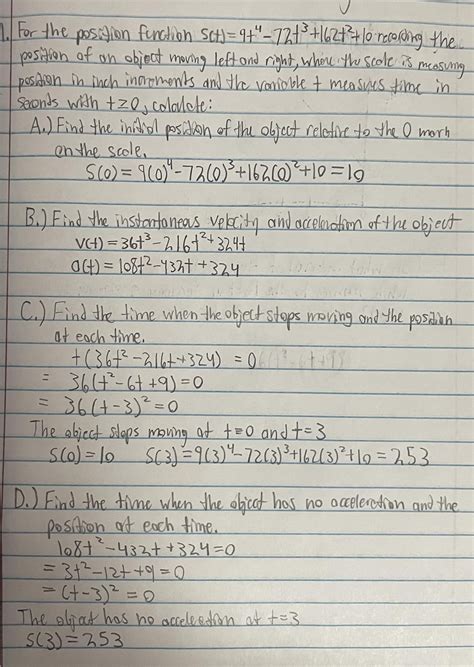 1. For the position function s(t)=9t⁴-72t³+162t²+10 recording the
position of an object moving left and right, where the scale is measuring
position in inch increments and the variable t measures time in
seconds with t≥0, calculate:
A.) Find the initial position of the object relative to the 0 mark
on the scale.
s(0)=9(0)⁴-72(0)³+162(0)²+10=10
B.) Find the instantaneous velocity and acceleration of the object
v(t)=36t³-216t²+324t
a(t)=108t²-432t+324
C.) Find the time when the object stops moving and the position
at each time.
t(36t²-216t+324)=0
= 36(t²-6t+9)=0
= 36(t-3)²=0
The object stops moving at t=0 and t=3
s(0)=10 s(3)=9(3)⁴-72(3)³+162(3)²+10=253
D.) Find the time when the object has no acceleration and the
position at each time.
108t²-432t+324=0
=3t²-12t+9=0
=(t-3)²=0
The object has no acceleration at t=3
s(3)=253